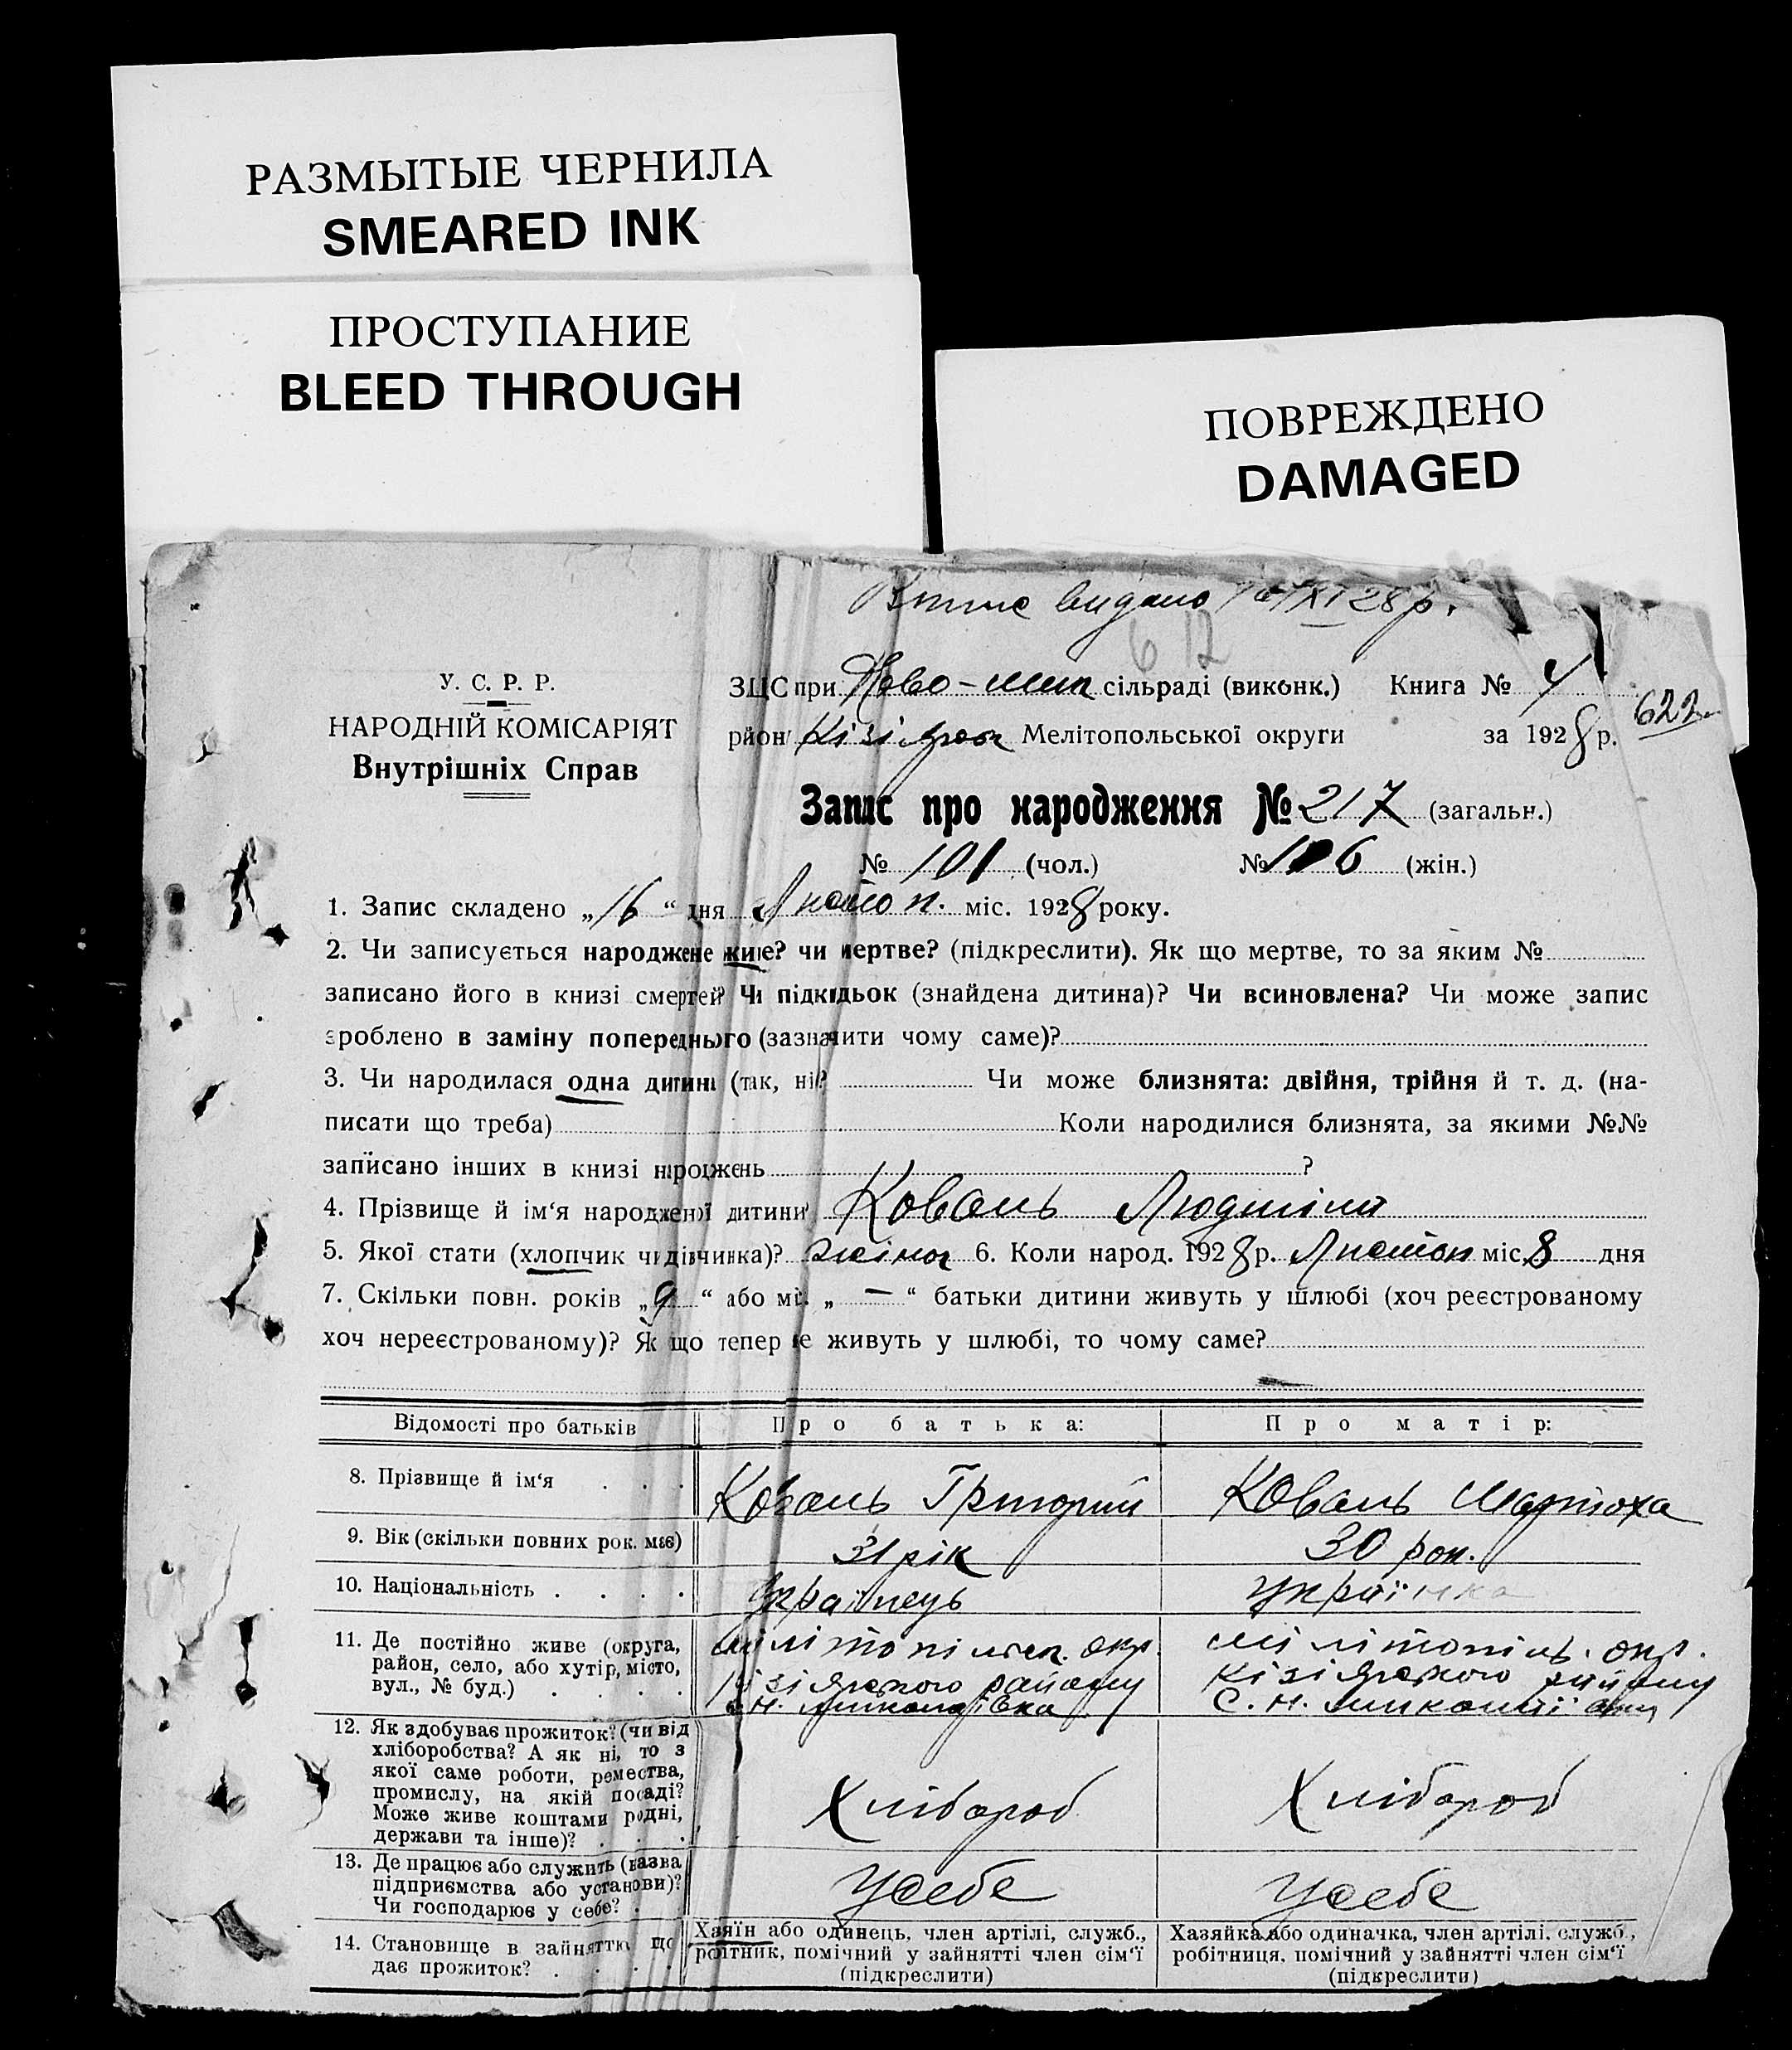 РАЗМЫТЫЕ ЧЕРНИЛА
SMEARED INK
ПРОСТУПАНИЕ
BLEED THROUGH
ПОВРЕЖДЕНО
DAMAGED
видано XI 28 р.
6 12
У. С. Р. Р.
НАРОДНІЙ КОМІСАРІЯТ
Внутрішніх Справ
ЗЦС при Ново-мик сільраді (виконк.) Книга № 4
622
район Кізіярск Мелітопольської округи за 1928 р.
Запис про народження № 217 (загальн.)
№ 101 (чол.) № 116 (жін.)
1. Запис складено „16“ дня Листоп. міс. 1928 року.
2. Чи записується народжене живе? чи мертве? (підкреслити). Як що мертве, то за яким №
записано його в книзі смертей? Чи підкідьок (знайдена дитина)? Чи всиновлена? Чи може запис
зроблено в заміну попереднього (зазначити чому саме)?
3. Чи народилася одна дитина (так, ні)? Чи може близнята: двійня, трійня й т. д. (на-
писати що треба) Коли народилися близнята, за якими №№
записано інших в книзі народжень ?
4. Прізвище й ім‘я народженої дитини Коваль Людміла
5. Якої стати (хлопчик чи дівчинка)? жіноч 6. Коли народ. 1928 р. Листоп міс. 8 дня
7. Скільки повн. років „9“ або міс. „—“ батьки дитини живуть у шлюбі (хоч реєстрованому
хоч нереєстрованому)? Як що тепер не живуть у шлюбі, то чому саме?
Відомості про батьків Про батька: Про матір:
8. Прізвище й ім‘я . . . Коваль Григорий Коваль Мартоха
9. Вік (скільки повних рок. має) 31 рік 30 рок.
10. Національність . . . . Українець Українка
11. Де постійно живе (округа,
район, село, або хутір, місто,
вул., № буд.) . . . .
Мілітопільск. окр.
Кізіярского району
с. Н. Миколаївка
Мілітопіль. окр.
Кізіярского району
С. Н. Миколаїовки
12. Як здобуває прожиток? (чи від
хліборобства? А як ні, то з
якої саме роботи, ремества,
промислу, на якій посаді?
Може живе коштами родні,
держави та інше)? . . .
Хлібороб Хлібороб
13. Де працює або служить (назва
підприємства або установи)?
Чи господарює у себе? .
Усебе Усебе
14. Становище в зайняттю що
дає прожиток? . . . .
Хазяїн або одинець, член артілі, служб.,
робітник, помічний у зайнятті член сім‘ї
(підкреслити)
Хазяйка або одиначка, член артілі, служб.,
робітниця, помічний у зайнятті член сім‘ї
(підкреслити)